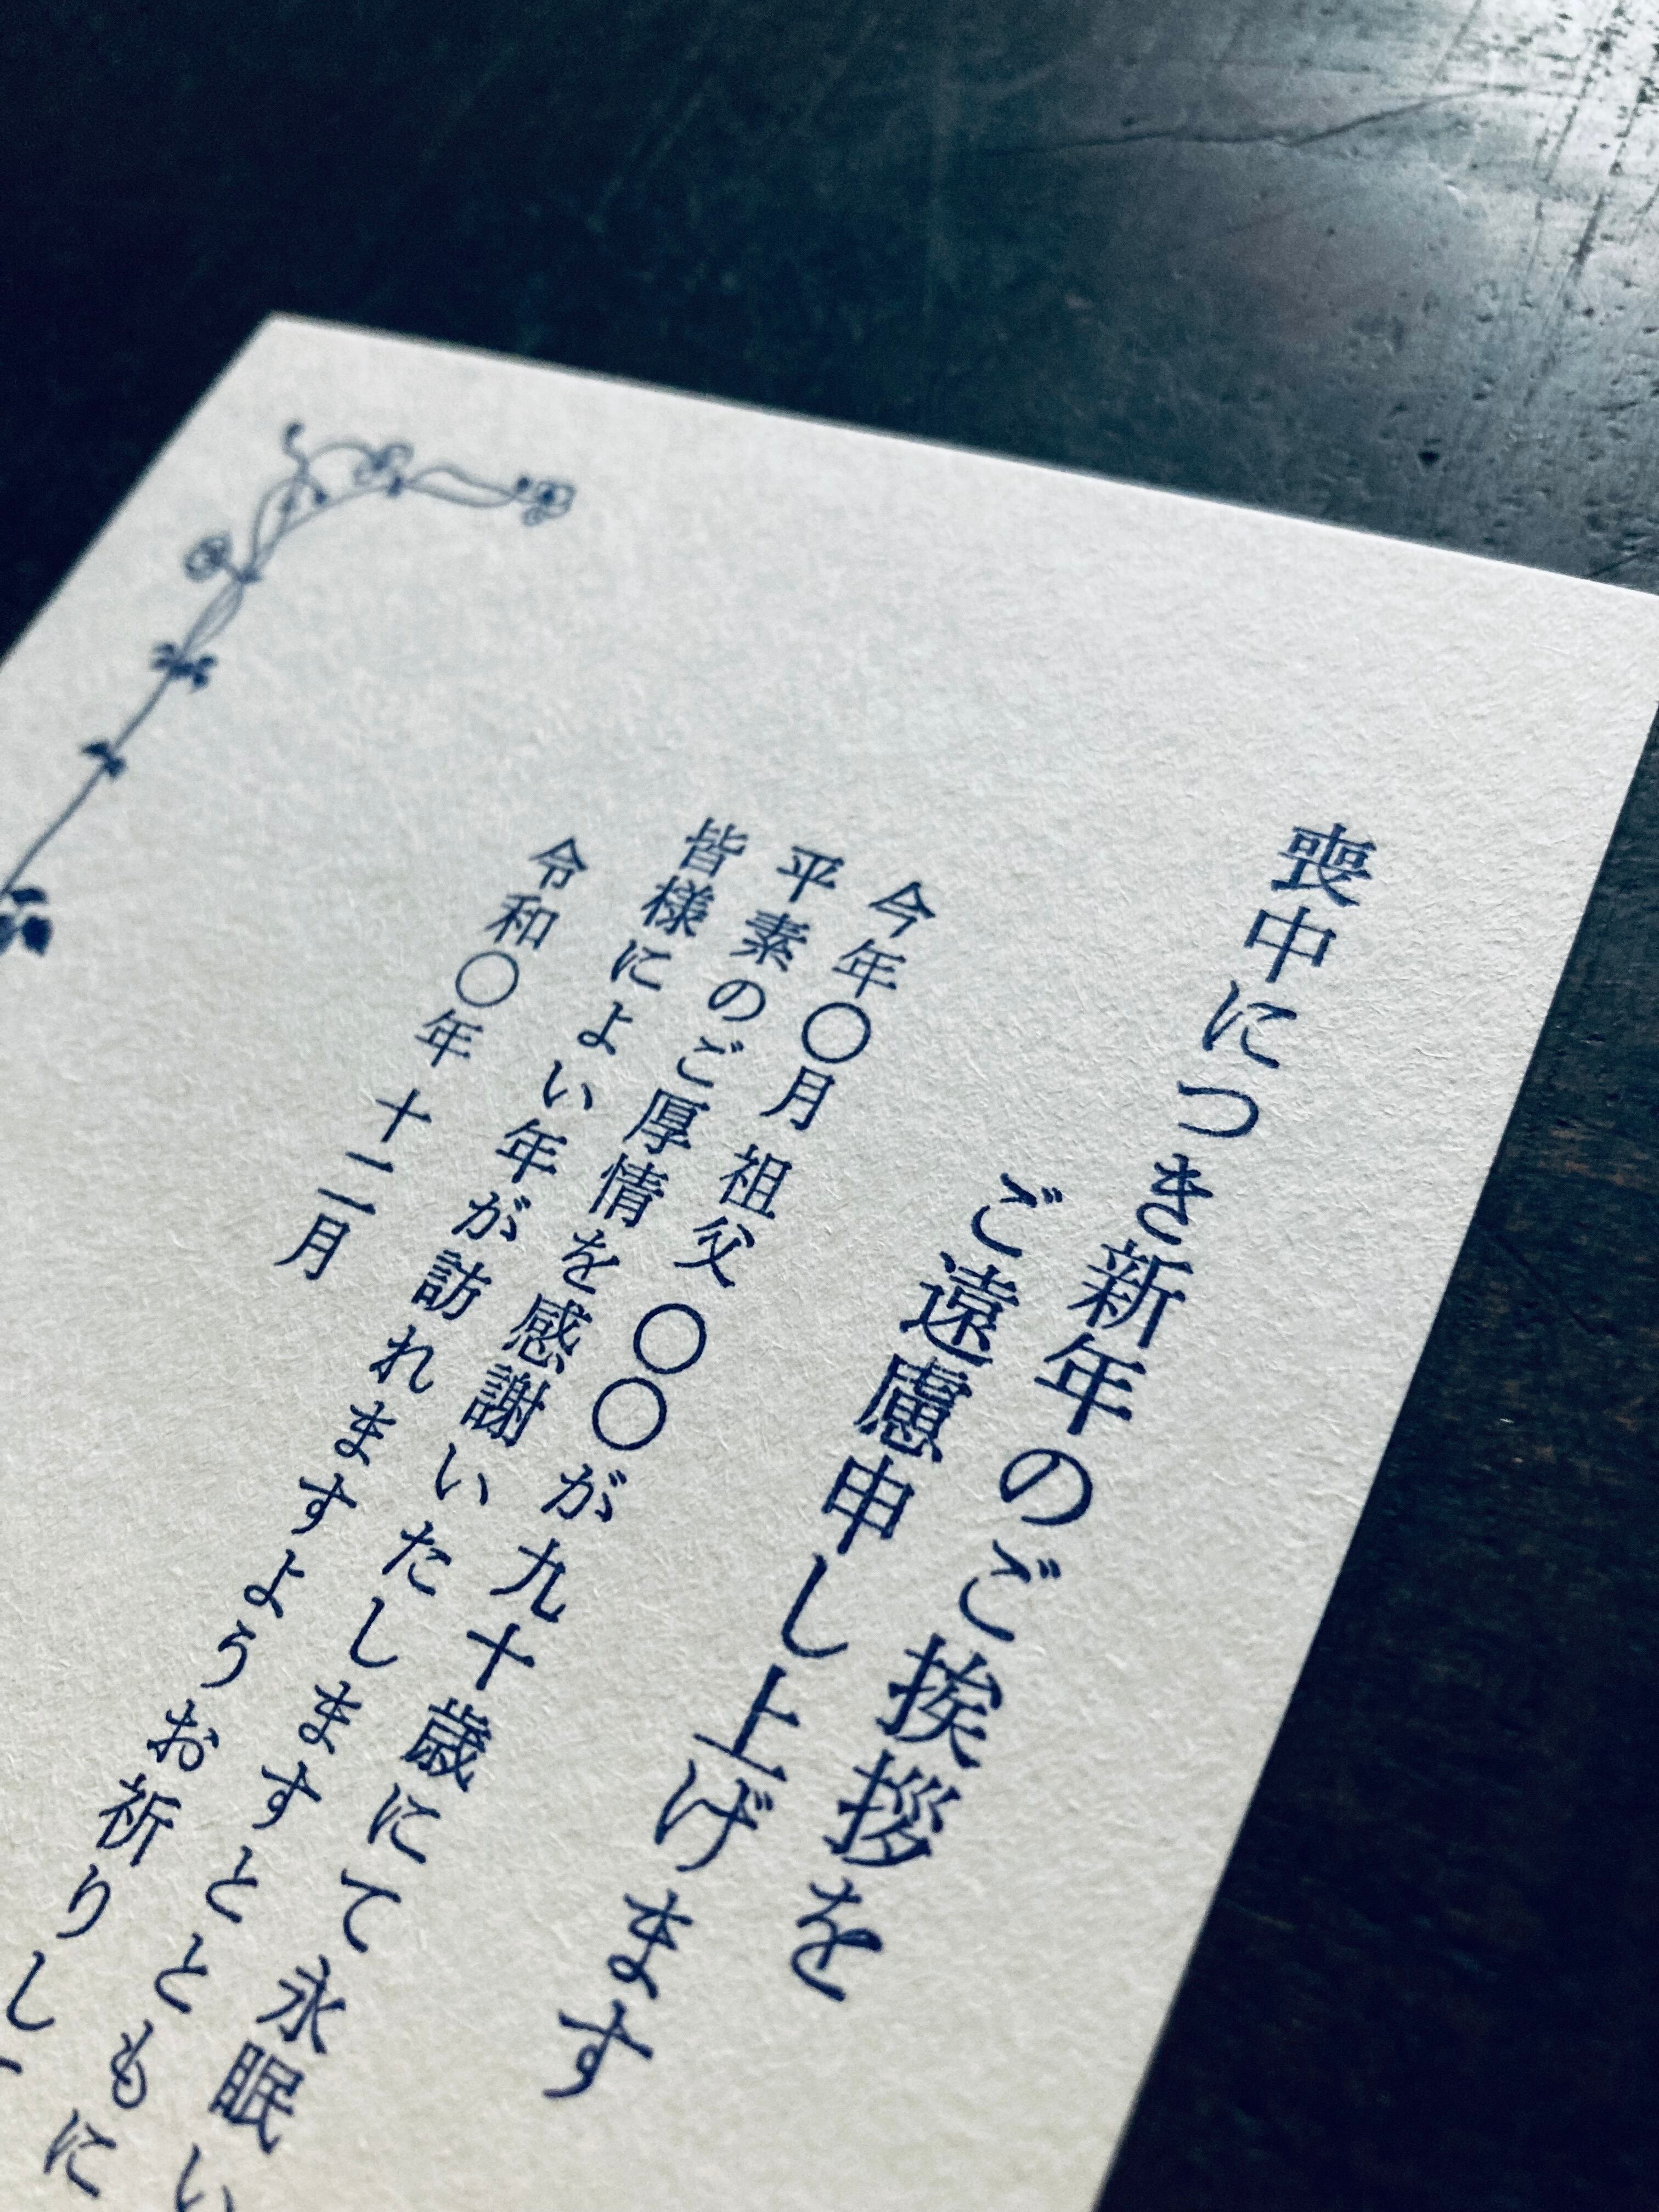 喪中につき新年のご挨拶を
ご遠慮申し上げます
今年〇月 祖父 〇〇が九十歳にて永眠い
平素のご厚情を感謝いたしますとともに
皆様によい年が訪れますようお祈りし
令和〇年 十二月